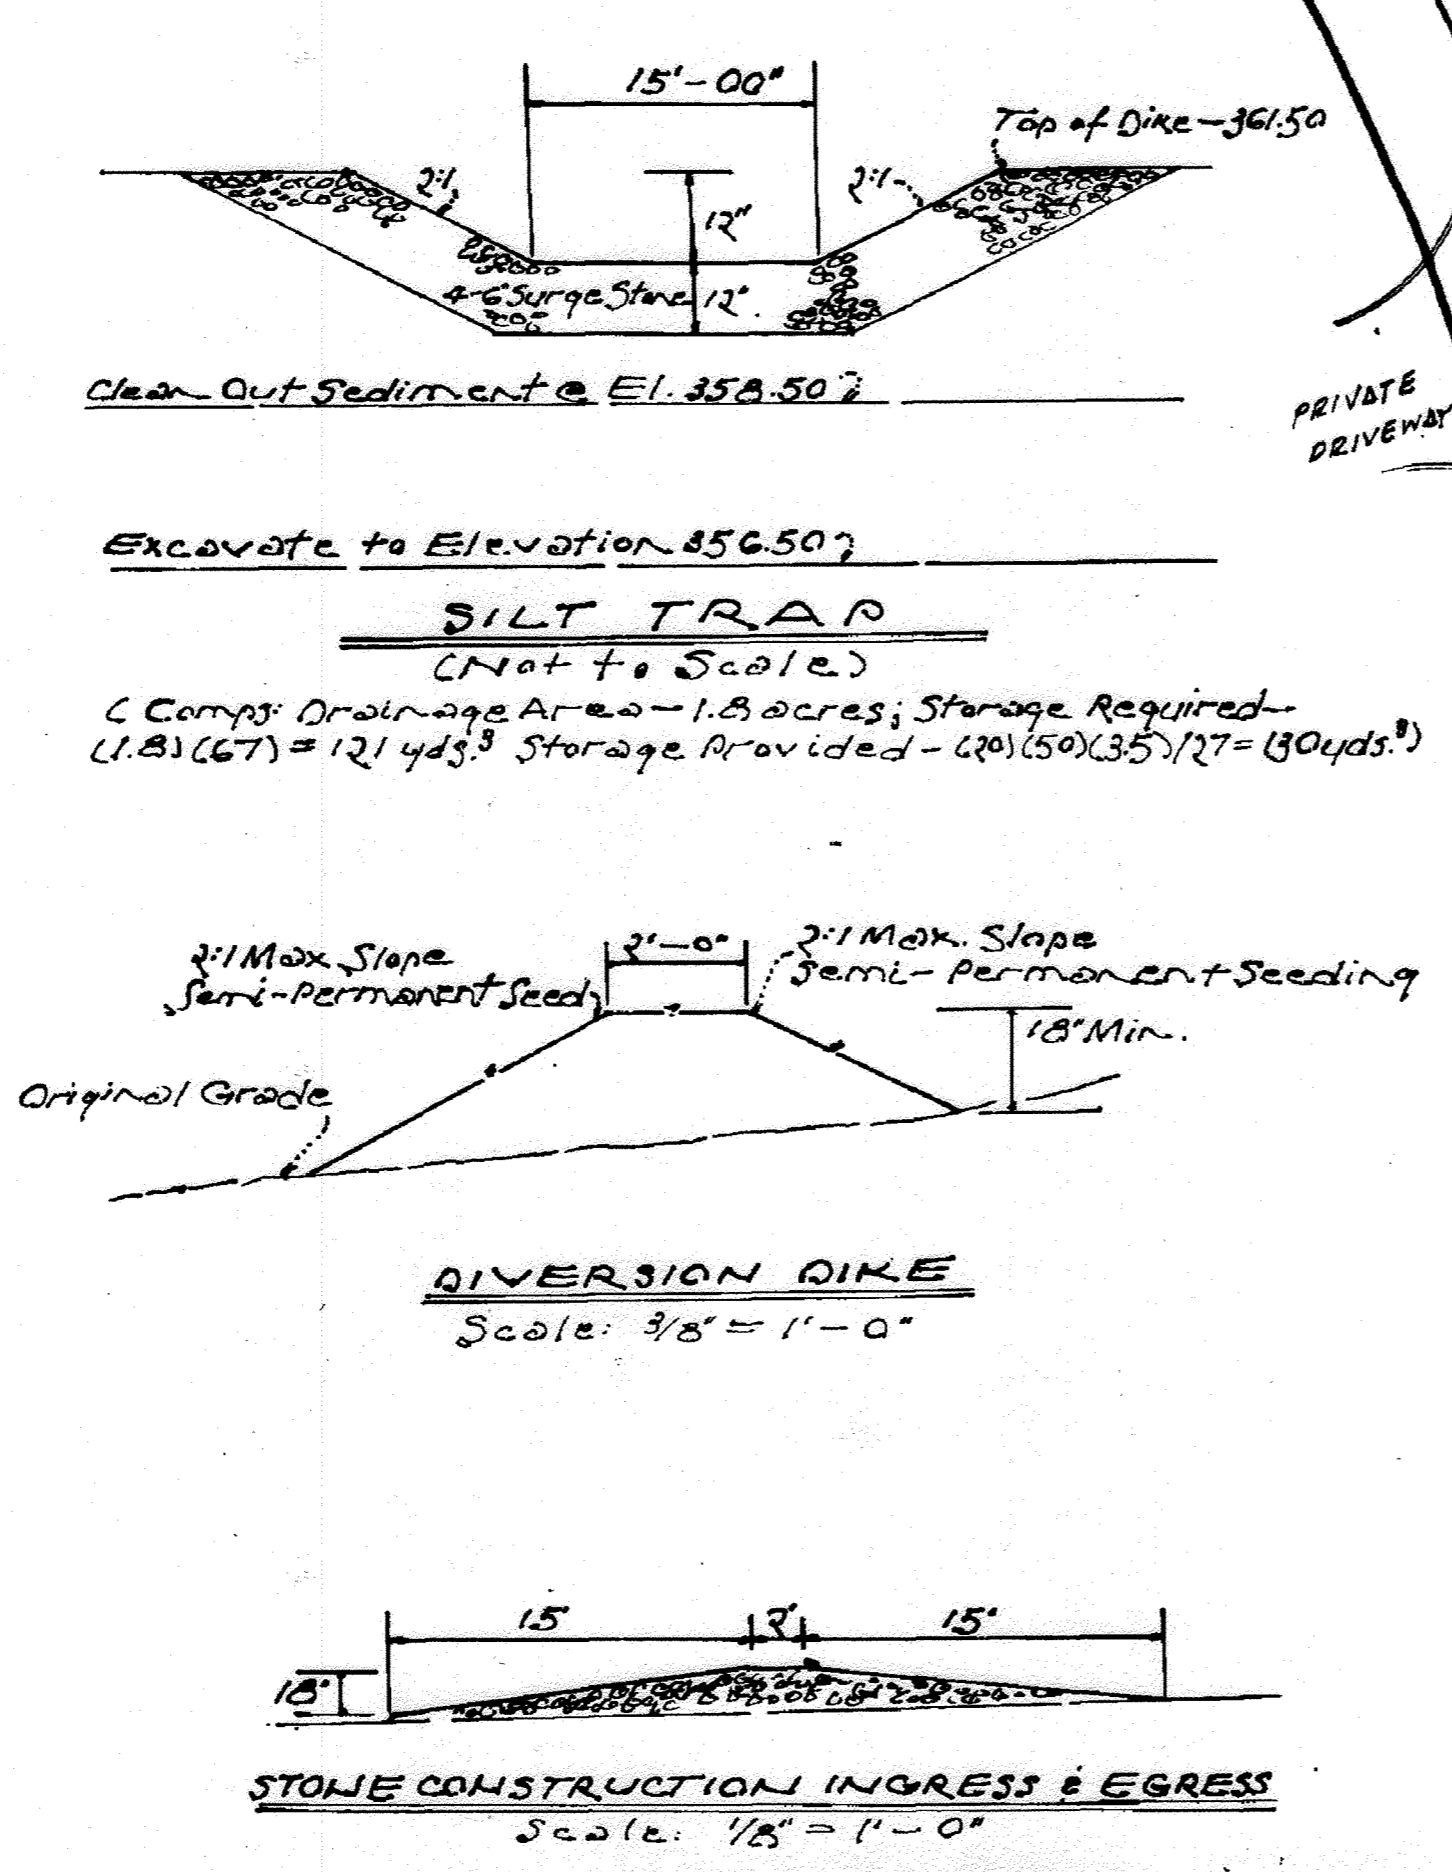 15'-00"
Top of Dike-361.50
2:1
2:1
12"
4-6" Surge Stone
12"
Clean Out Sediment @ El. 358.50
PRIVATE
DRIVEWAY
Excavate to Elevation 356.50
SILT TRAP
(Not to Scale)
(Comps: Drainage Area-1.8 acres; Storage Required-
(1.8)(67) = 121 yds.³ Storage Provided-(20)(50)(3.5)/27=130yds.³)
2:1 Max. Slope
Semi-Permanent Seed
2'-0"
2:1 Max. Slope
Semi-Permanent Seeding
18" Min.
Original Grade
DIVERSION DIKE
Scale: 3/8" = 1'-0"
15'
2'
15'
18"
STONE CONSTRUCTION INGRESS & EGRESS
Scale: 1/8" = 1'-0"